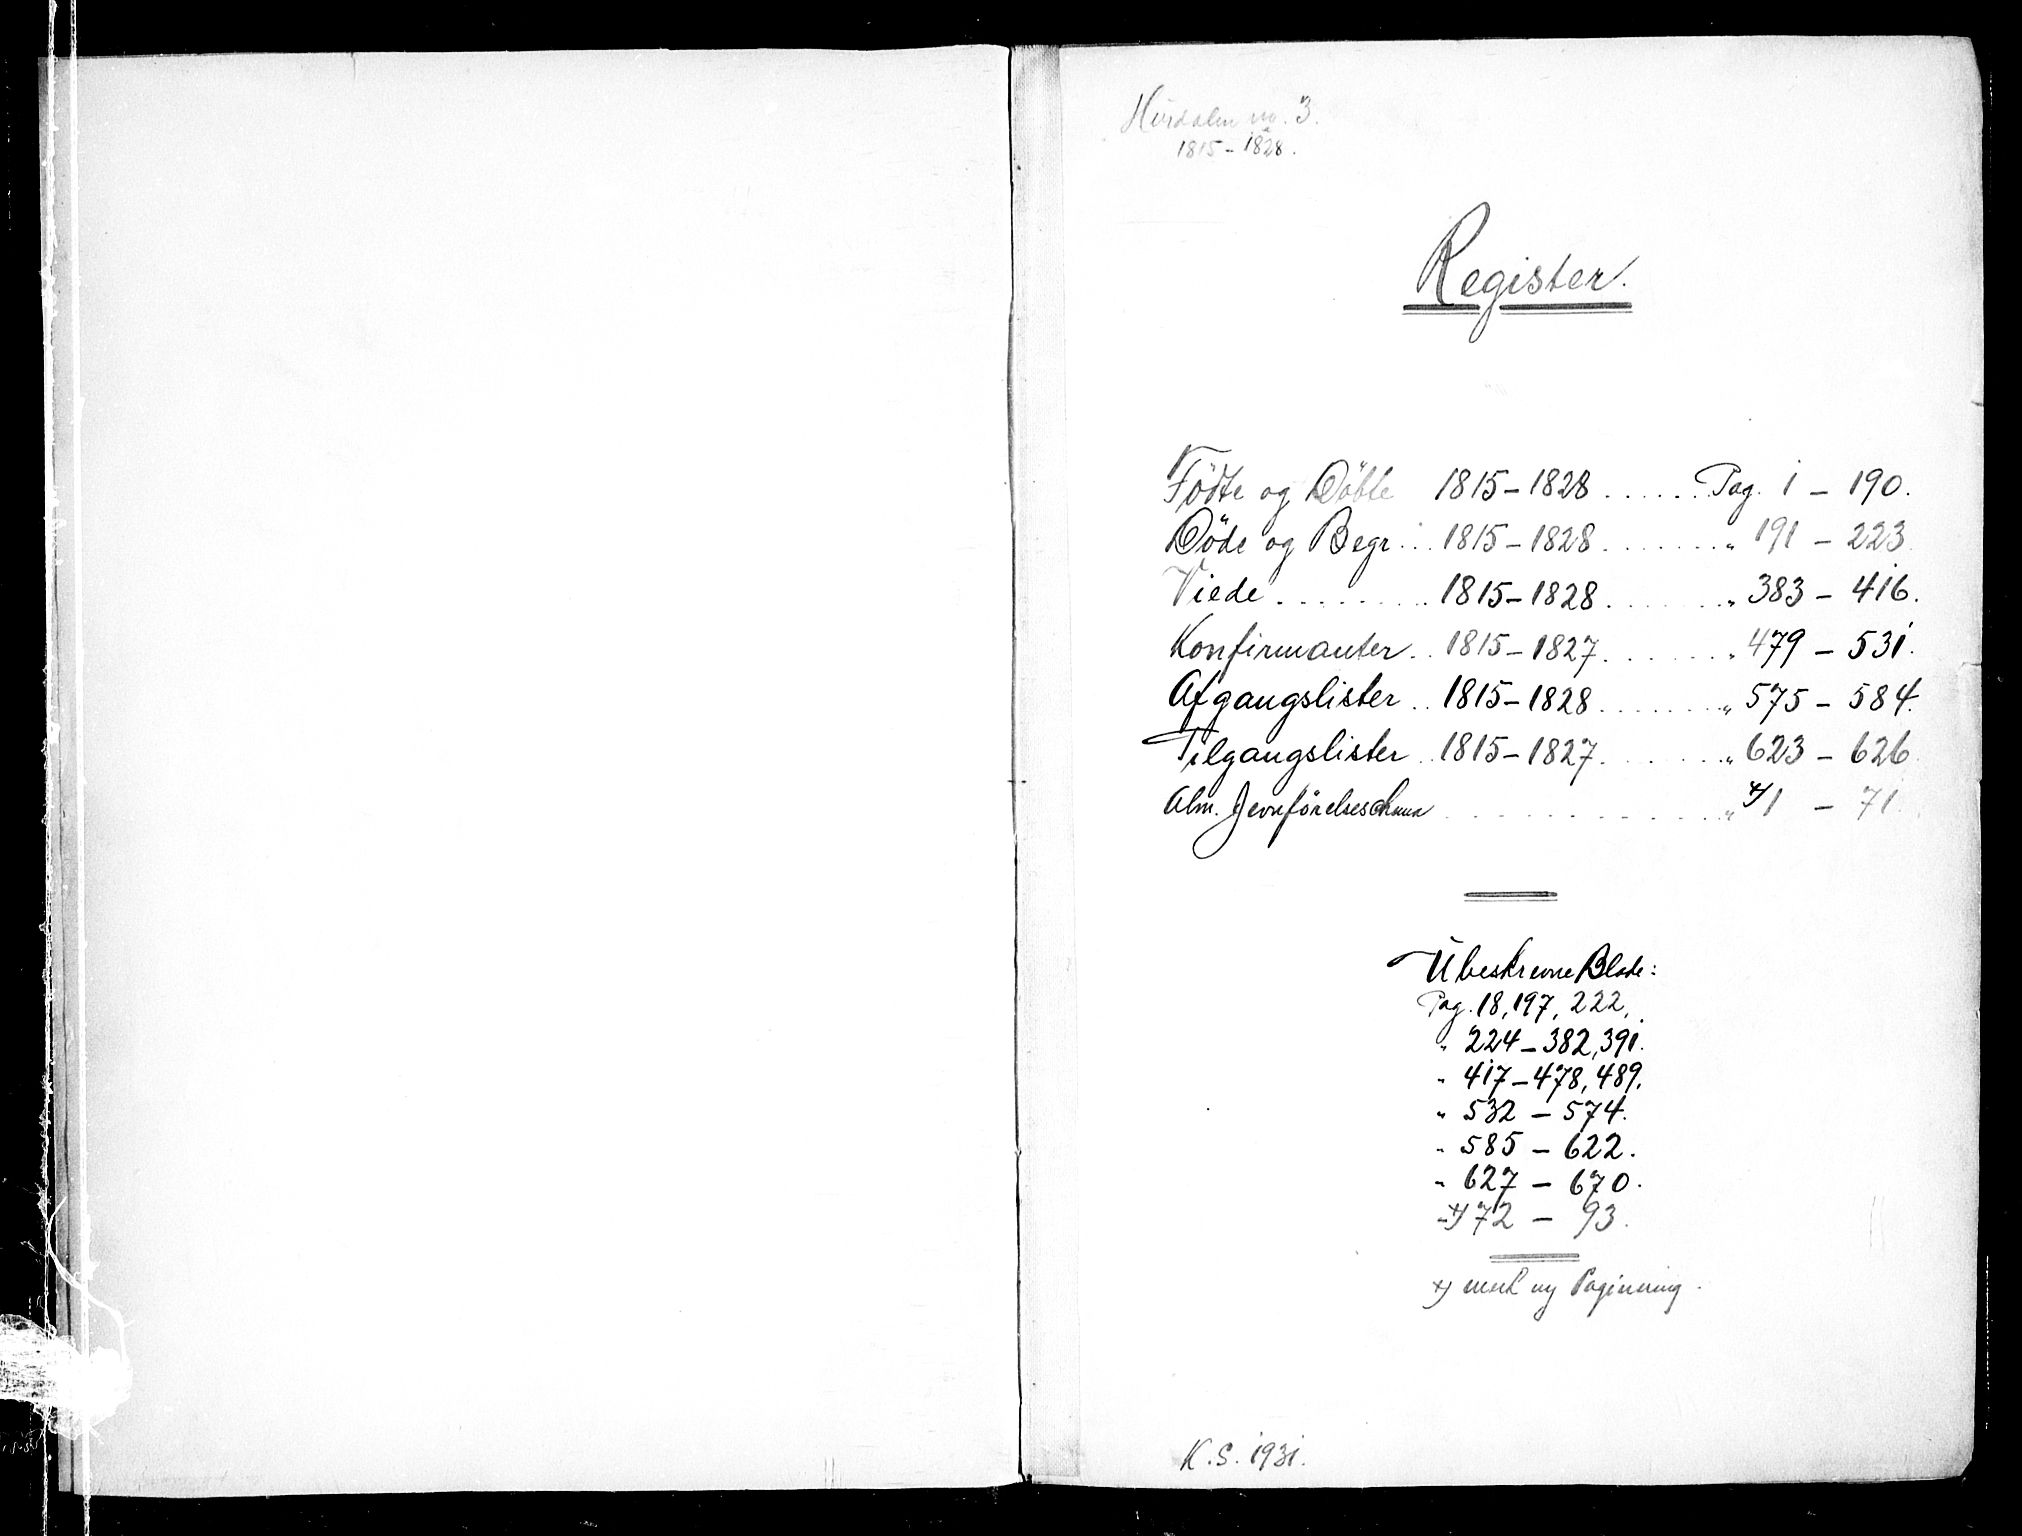 Hurdalen no. 3.
1815 - 1828.
Register.
Födte og Döbte 1815 - 1828 ...... Pag. 1 - 190.
Döde og Begr... 1815 - 1828 ....... " 191 - 223.
Viede ........ 1815 - 1828 ....... " 383 - 416.
Konfirmanter.. 1815 - 1827 ....... " 479 - 531.
Afgangslister .. 1815 - 1828 ....... " 575 - 584.
Tilgangslister .. 1815 - 1827 ....... " 623 - 626.
Alm. Jevnförelses ............ " x) 1 - 71.
Ubeskrevne Blade:
Pag. 18, 197, 222,
" 224 - 382, 391.
" 417 - 478, 489.
" 532 - 574.
" 585 - 622.
" 627 - 670.
" x) 72 - 93.
x) merk ny Paginering.
K.S. 1931.